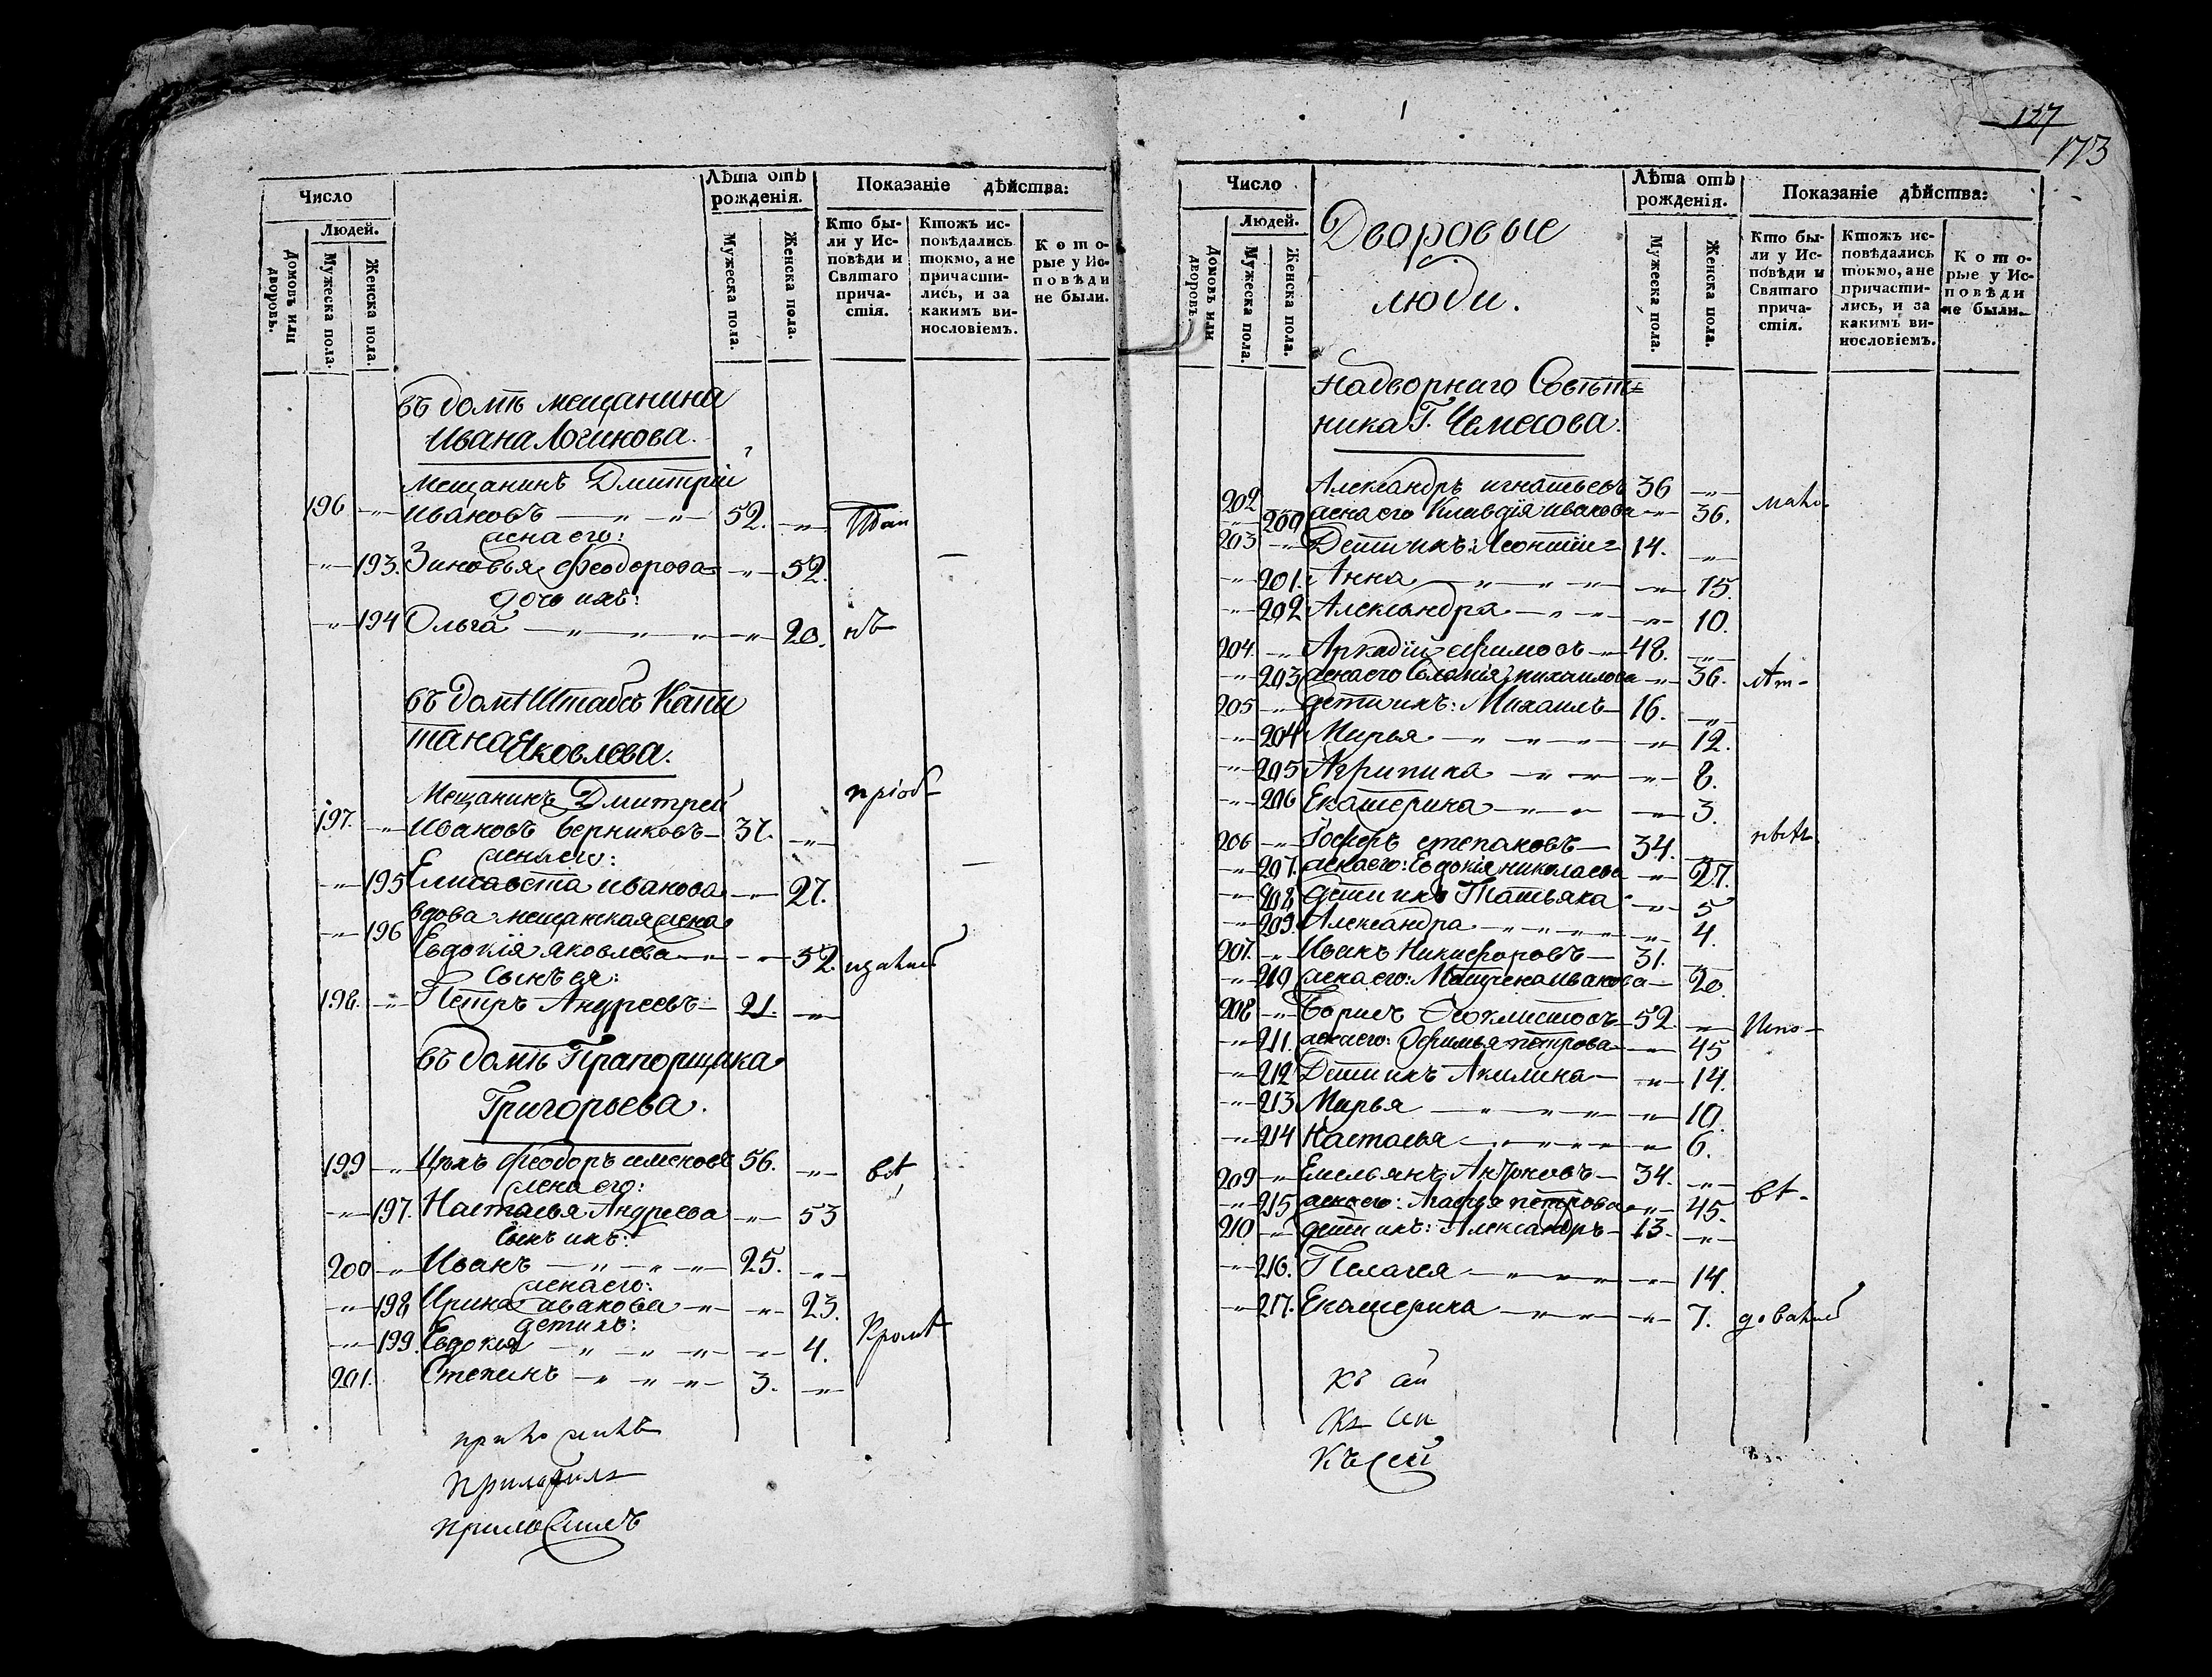 Число
Людей.
Домовъ или дворовъ.
Мужеска пола.
Женска пола.
Лѣта отъ рожденія.
Мужеска пола.
Женска пола.
Показаніе дѣйства:
Кто бы-
ли у Ис-
повѣди и
Святаго
прича-
стія.
Ктожъ ис-
повѣдались
токмо, а не
причасти-
лись, и за
какимъ ви-
нословіемъ.
Кото-
рые у Ис-
повѣди
не были.
въ домѣ мещанина
Ивана Логинова.
Мещанинъ Дмитрій
196 -"- Ивановъ -"-"- 52. -"-
жена его:
-"- 193. Зиновья Феодорова -"- 52.
дочь ихъ:
-"- 194 Ольга -"-"-"- 20. нъ
въ домѣ Штабсъ Капи
тана Яковлева.
Мещанинъ Дмитрей пріоб-
197. -"- Ивановъ Верниковъ 37. -"-
жена его:
-"- 195 Елисавета Иванова -"- 27.
вдова мещанская жена
-"- 196
Евдокія Яковлева -"- 52.
Сынъ ея:
198. -"- Петръ Андреевъ 21. -"-
въ домѣ Прапорщика
Григорьева.
199 -"- Феодоръ Семеновъ 56. -"- вѣ
жена его:
-"- 197. Настасья Андреева -"- 53
Сынъ ихъ:
200 -"- Иванъ -"-"-"- 25. -"-
жена его:
-"- 198 Ирина Иванова -"- 23.
дети ихъ:
-"- 199. Евдокья -"-"-"- 4. Кромѣ
201. Степанъ -"-"-"- 3. -"-
приложилъ
127
173
Число
Людей.
Домовъ или дворовъ.
Мужеска пола.
Женска пола.
Дворовые
люди.
Лѣта отъ рожденія.
Мужеска пола.
Женска пола.
Показаніе дѣйства:
Кто бы-
ли у Ис-
повѣди и
Святаго
прича-
стія.
Ктожъ ис-
повѣдались
токмо, а не
причасти-
лись, и за
какимъ ви-
нословіемъ.
Кото-
рые у Ис-
повѣди
не были.
Надворнаго Совѣт=
ника Г. Чемесова.
202 Александръ Игнатьевъ 36 -"-
-"- 200 жена его Клавдія Иванова -"- 36.
203 -"- Дети ихъ: Леонтій 14. -"-
-"- 201. Анна -"-"-"- 15.
-"- 202 Александра -"-"-"- 10.
204. -"- Аркадій Ефимовъ 48. -"-
-"- 203 жена его Михаилова -"- 36.
205 -"- дети ихъ: Михаилъ 16. -"-
-"- 204 Марья -"-"-"- 12.
-"- 205 Агрипина -"-"-"- 8.
-"- 206 Екатерина -"-"-"- 3.
206 -"- Іосифъ Степановъ 34. -"-
-"- 207. жена его: Евдокія Николаева -"- 27.
-"- 208 дети ихъ Татьяна -"- 5
-"- 209. Александра -"-"-"- 4.
207. -"- Иванъ Никифоровъ 31. -"-
-"- 210 жена его: Матрена Иванова 20.
208 -"- Борисъ Феоклистовъ 52. -"- Испо-
-"- 211. жена его: Ефимья Петрова -"- 45
-"- 212 Дети ихъ Акилина -"- 14.
-"- 213 Марья -"-"-"- 10.
-"- 214 Настасья -"-"-"- 6.
209 -"- Емельянъ Антоновъ 34. -"-
-"- 215 жена его: Агафья Петрова -"- 45. вѣ-
210 -"- дети ихъ: Александръ 13. -"-
-"- 216. Пелагея -"-"-"- 14.
-"- 217. Екатерина -"-"-"- 7.
Къ сей